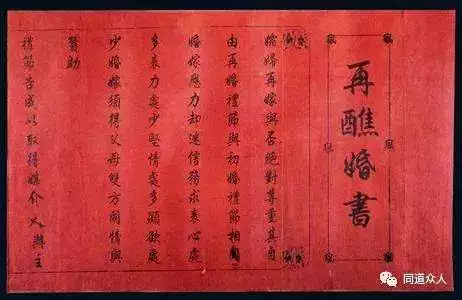 再醮婚書
孀婦再嫁與否絕對尊重其自
由再婚禮節與初婚禮節相同
婚嫁應力却迷信務求衷心處
多衷力處少堅情處多顧欲處
少婚嫁須得父母雙方同情與
贊助
禮節告成以取得媒介主
同道众人